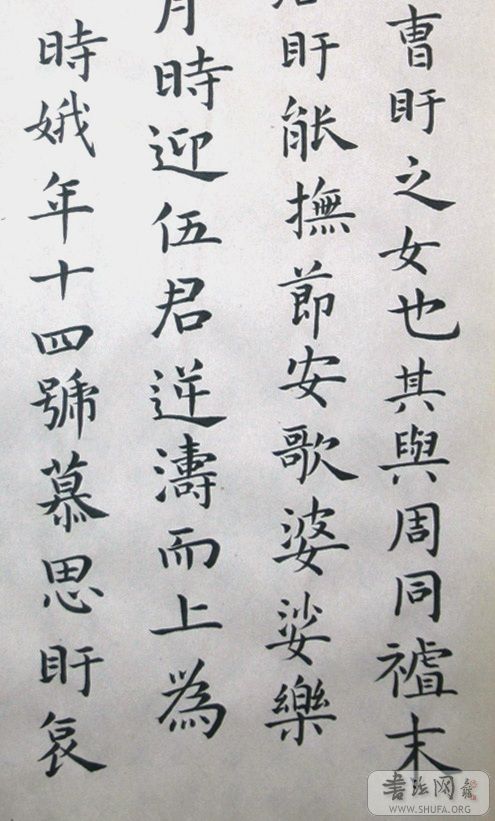 曺盱之女也其與周同末
盱能撫莭安歌婆娑樂
月時迎伍君逆濤而上為
時娥年十四號慕思盱哀
書法网
WWW.SHUFA.ORG